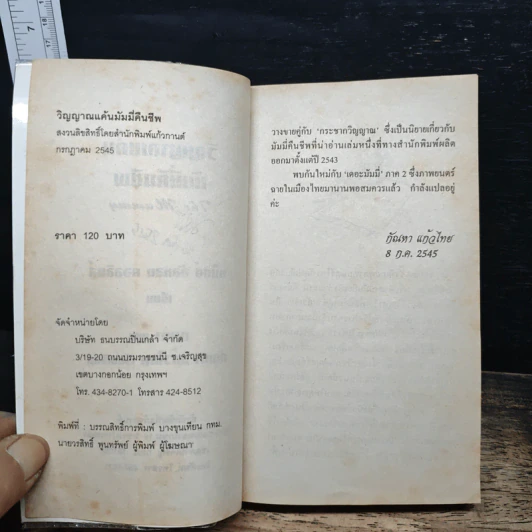 วิญญาณแค้นมัมมี่คืนชีพ
สงวนลิขสิทธิ์โดยสำนักพิมพ์แก้วกานต์
กรกฎาคม 2545
ราคา 120 บาท
จัดจำหน่ายโดย
บริษัท ธนบรรณปิ่นเกล้า จำกัด
3/19-20 ถนนบรมราชชนนี ซ.เจริญสุข
เขตบางกอกน้อย กรุงเทพฯ
โทร. 434-8270-1 โทรสาร 424-8512
พิมพ์ที่ : บรรณสิทธิ์การพิมพ์ บางขุนเทียน กทม.
นายวรสิทธิ์ พูนทรัพย์ ผู้พิมพ์ ผู้โฆษณา
วางขายคู่กับ ‘กระชากวิญญาณ’ ซึ่งเป็นนิยายเกี่ยวกับ
มัมมี่คืนชีพที่น่าอ่านเล่มหนึ่งที่ทางสำนักพิมพ์ผลิต
ออกมาตั้งแต่ปี 2543
พบกันใหม่กับ ‘เดอะมัมมี่’ ภาค 2 ซึ่งภาพยนตร์
ฉายในเมืองไทยมานานพอสมควรแล้ว กำลังแปลอยู่
ค่ะ
กัณหา แก้วไทย
8 ก.ค. 2545